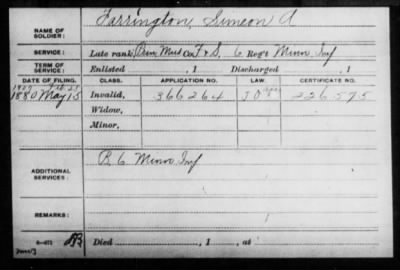 NAME OF SOLDIER: Farrington, Simeon A
SERVICE: Late rank, Prin Mus Co. F & S, 6 Reg't Minn Inf
TERM OF SERVICE: Enlisted , 1 Discharged , 1
DATE OF FILING. CLASS. APPLICATION NO. LAW. CERTIFICATE NO.
1880 May 15 Invalid, 366264 226.595
Widow,
Minor,
ADDITIONAL SERVICES: B. 6 Minn Inf
REMARKS:
Died , 1 , at